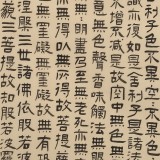 舍利子色不異空
亦復如是舍利子是諸法
不增不減是故空中無色
意無色聲香味觸法無
無明盡乃至無老
無得以無所得故菩
無罣礙無罣礙故無有
三世諸佛依般若波
三菩提故知般若波羅